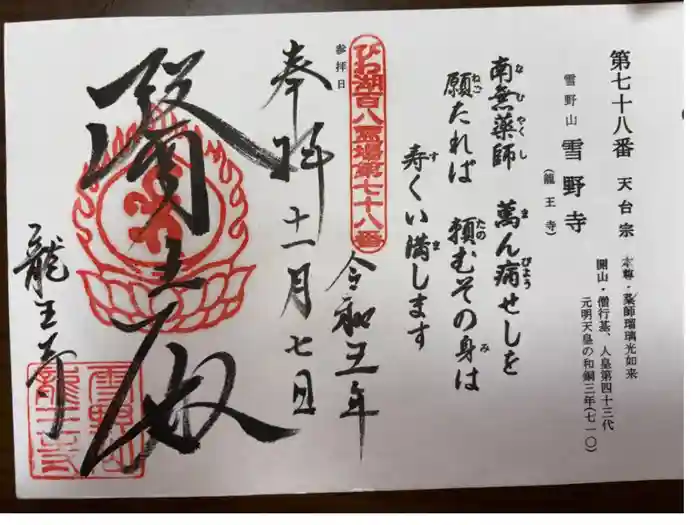 第七十八番 天台宗
本尊・薬師瑠璃光如来
開山・僧行基、人皇第四十三代
元明天皇の和銅三年(七一〇)
雪野山 雪野寺
(龍王寺)
南無薬師 萬ん病せしを
なむやくし まんびょう
願たれば 頼むその身は
ねご たの み
寿くい満します
す ま
びわ湖百八霊場第七十八番
参拝日
令和五年
奉拝 十一月七日
醫王殿
龍王寺